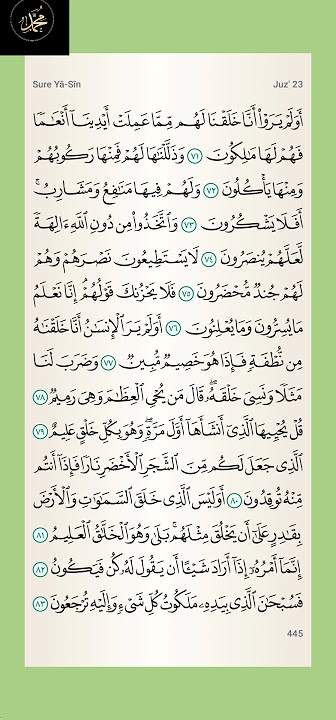 محمد
Sure Yâ-Sîn Juz' 23
أَوَلَمْ يَرَوْا۟ أَنَّا خَلَقْنَا لَهُم مِّمَّا عَمِلَتْ أَيْدِينَآ أَنْعَٰمًا
فَهُمْ لَهَا مَٰلِكُونَ ٧١ وَذَلَّلْنَٰهَا لَهُمْ فَمِنْهَا رَكُوبُهُمْ
وَمِنْهَا يَأْكُلُونَ ٧٢ وَلَهُمْ فِيهَا مَنَٰفِعُ وَمَشَارِبُ ۖ
أَفَلَا يَشْكُرُونَ ٧٣ وَٱتَّخَذُوا۟ مِن دُونِ ٱللَّهِ ءَالِهَةً
لَّعَلَّهُمْ يُنصَرُونَ ٧٤ لَا يَسْتَطِيعُونَ نَصْرَهُمْ وَهُمْ
لَهُمْ جُندٌ مُّحْضَرُونَ ٧٥ فَلَا يَحْزُنكَ قَوْلُهُمْ ۘ إِنَّا نَعْلَمُ
مَا يُسِرُّونَ وَمَا يُعْلِنُونَ ٧٦ أَوَلَمْ يَرَ ٱلْإِنسَٰنُ أَنَّا خَلَقْنَٰهُ
مِن نُّطْفَةٍ فَإِذَا هُوَ خَصِيمٌ مُّبِينٌ ٧٧ وَضَرَبَ لَنَا
مَثَلًا وَنَسِىَ خَلْقَهُۥ ۖ قَالَ مَن يُحْىِ ٱلْعِظَٰمَ وَهِىَ رَمِيمٌ ٧٨
قُلْ يُحْيِيهَا ٱلَّذِىٓ أَنشَأَهَآ أَوَّلَ مَرَّةٍ ۖ وَهُوَ بِكُلِّ خَلْقٍ عَلِيمٌ ٧٩
ٱلَّذِى جَعَلَ لَكُم مِّنَ ٱلشَّجَرِ ٱلْأَخْضَرِ نَارًا فَإِذَآ أَنتُم
مِّنْهُ تُوقِدُونَ ٨٠ أَوَلَيْسَ ٱلَّذِى خَلَقَ ٱلسَّمَٰوَٰتِ وَٱلْأَرْضَ
بِقَٰدِرٍ عَلَىٰٓ أَن يَخْلُقَ مِثْلَهُم ۚ بَلَىٰ وَهُوَ ٱلْخَلَّٰقُ ٱلْعَلِيمُ ٨١
إِنَّمَآ أَمْرُهُۥٓ إِذَآ أَرَادَ شَيْـًٔا أَن يَقُولَ لَهُۥ كُن فَيَكُونُ ٨٢
فَسُبْحَٰنَ ٱلَّذِى بِيَدِهِۦ مَلَكُوتُ كُلِّ شَىْءٍ وَإِلَيْهِ تُرْجَعُونَ ٨٣
445